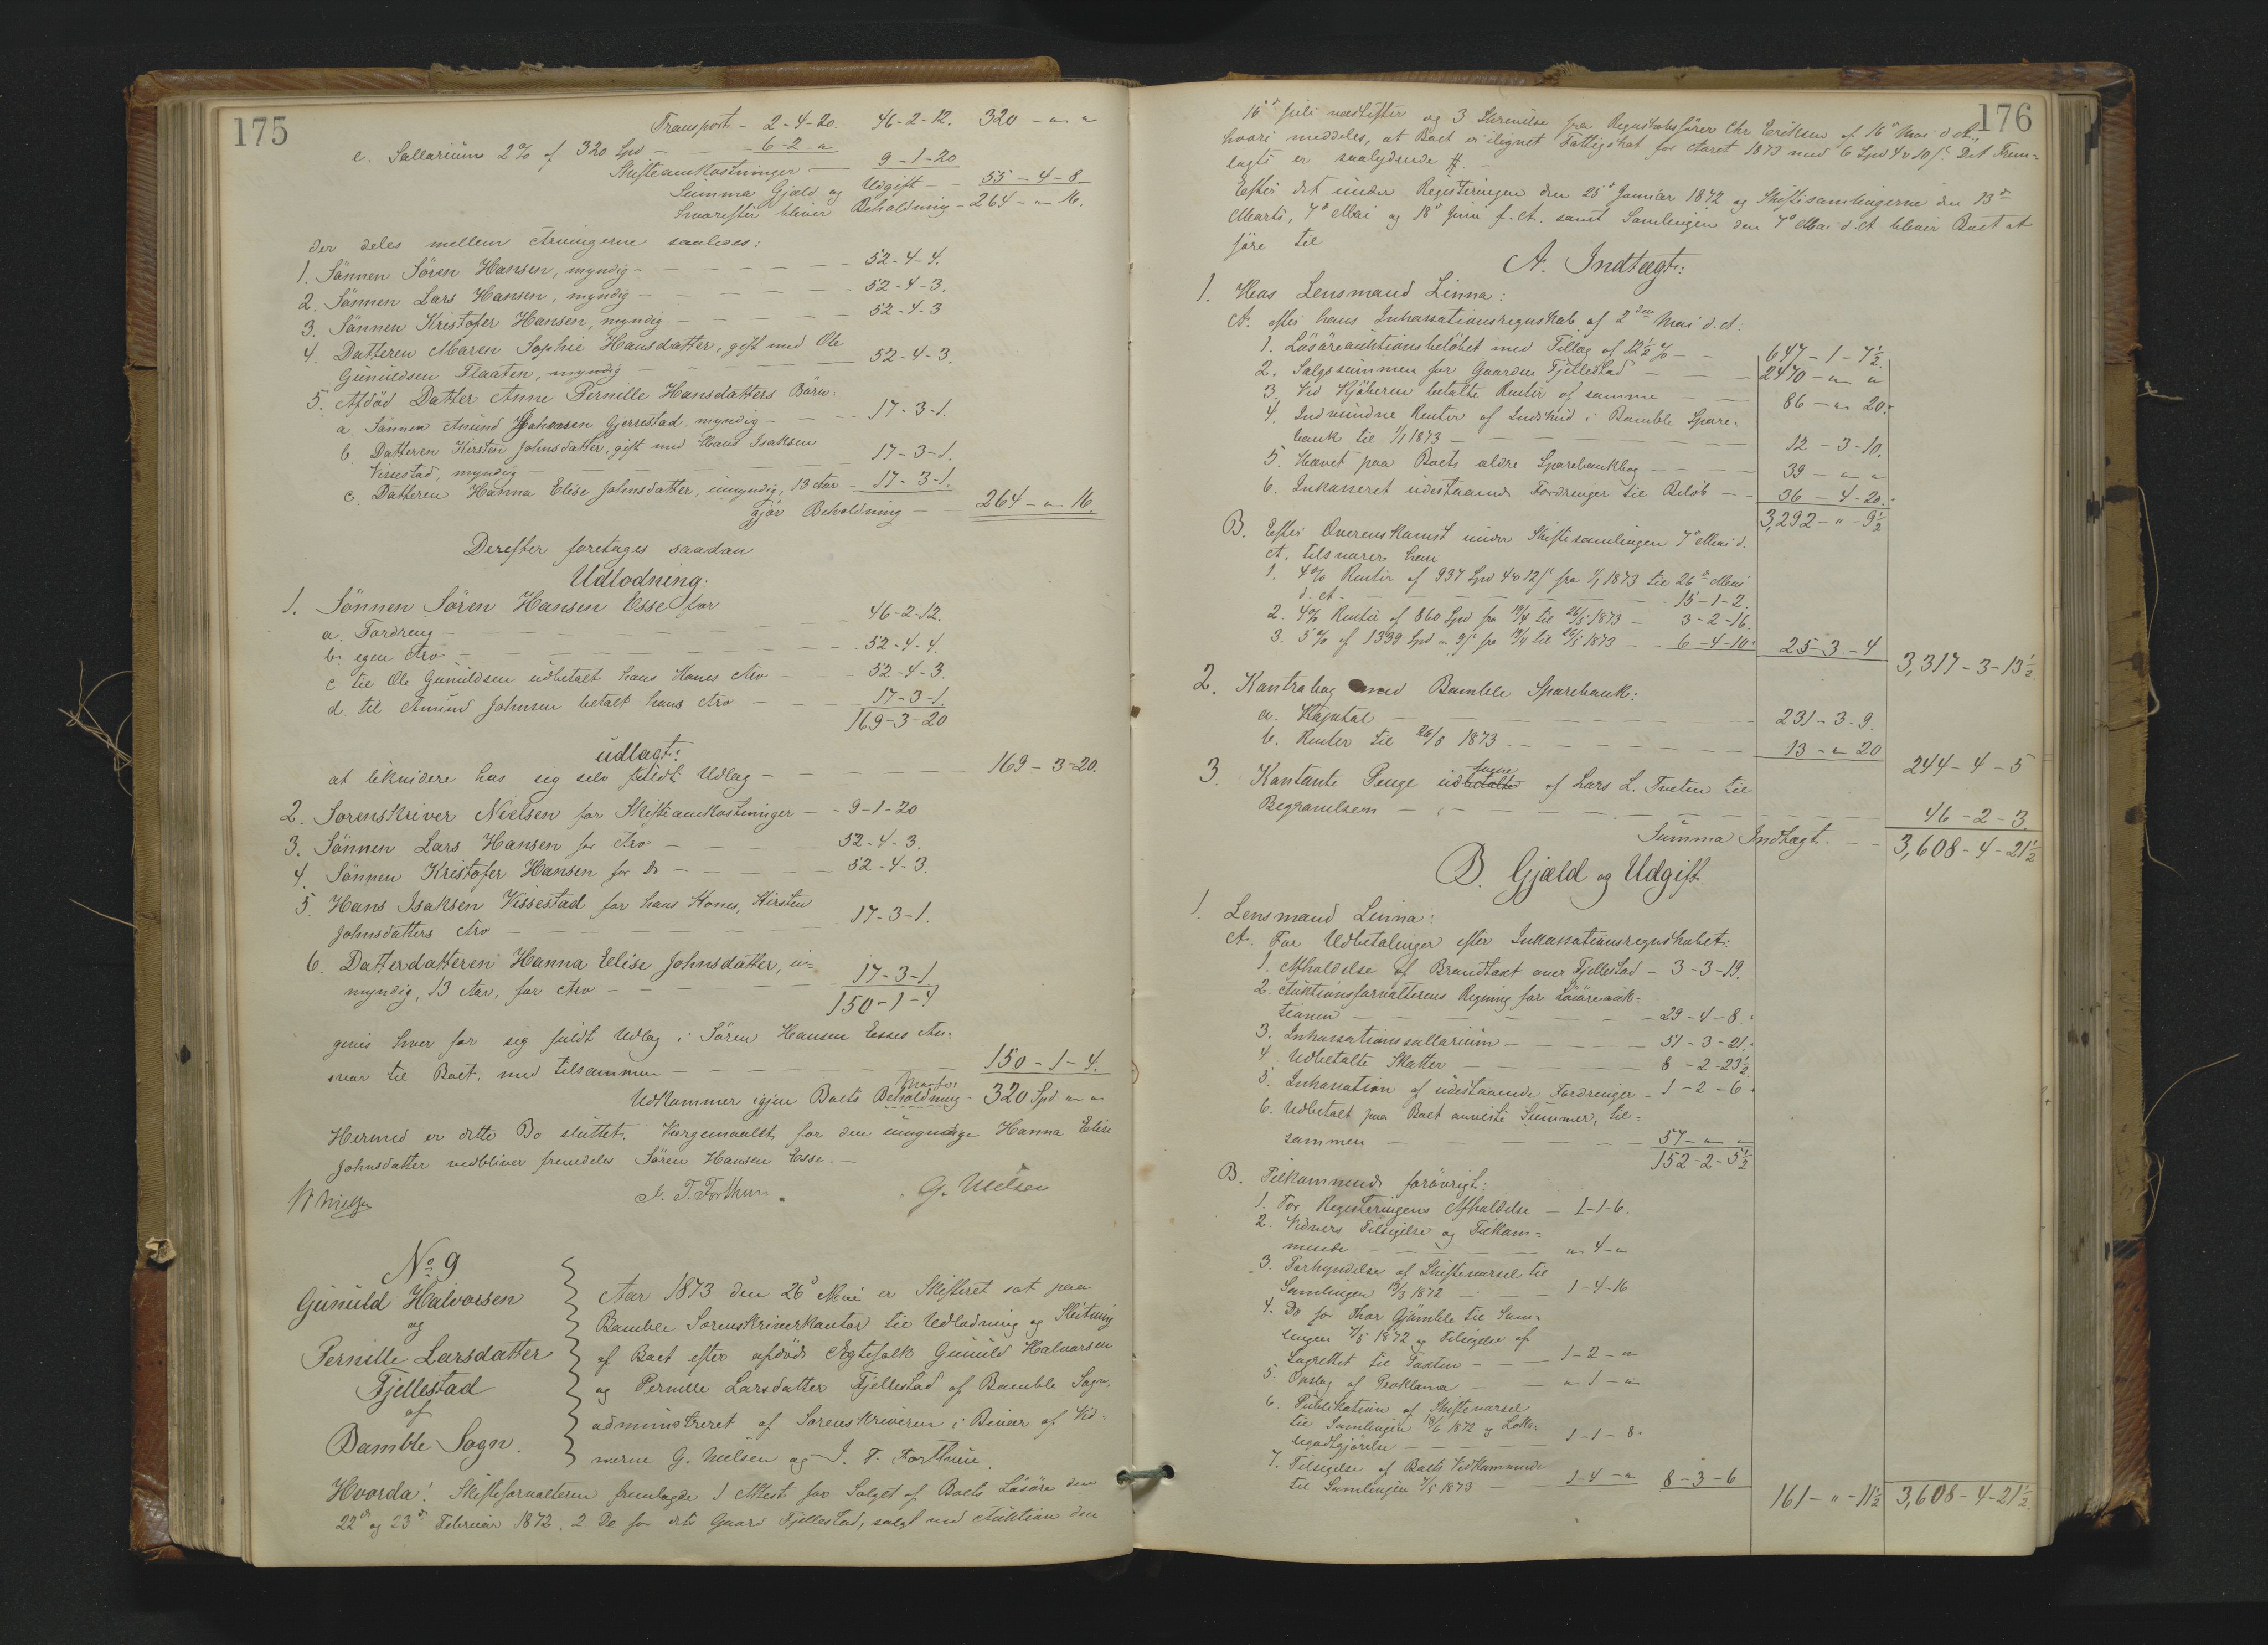 175
Transport - 2-4-20. 46-2-12. 320 - " "
e. Sallarium 2% af 320 Spd - 6-2-"
Skifteomkostninger - 9-1-20
Summa Gjæld og Udgift - 55-4-8
hvorefter bliver Beholdning - 264-"-16.
der deles mellem Arvingerne saaledes:
1. Sønnen Søren Hansen, myndig - 52-4-4.
2. Sønnen Lars Hansen, myndig - 52-4-3.
3. Sønnen Kristofer Hansen, myndig - 52-4-3
4. Datteren Maren Sophie Hansdatter, gift med Ole
Gunuldsen Flaaten, myndig - 52-4-3.
5. Afdød Datter Anne Pernille Hansdatters Børn:
a. Sønnen Amund Johnsen Gjerrestad myndig - 17-3-1.
b. Datteren Kirsten Johnsdatter, gift med Hans Isaksen
Vissestad, myndig - 17-3-1.
c. Datteren Hanna Elise Johnsdatter, umyndig, 13 Aar - 17-3-1.
gjør Beholdning - 264-"-16.
Derefter foretages saadan
Udlodning:
1. Sønnen Søren Hansen Esse for
a. Fordring - 46-2-12.
b. egen Arv - 52-4-4.
c. til Ole Gunuldsen udbetalt hans Kones Arv - 52-4-3.
d. til Amund Johnsen betalt hans Arv - 17-3-1.
169-3-20
udlagt:
at likvidere hos sig selv fuldt Udlæg - 169-3-20.
2. Sorenskriver Nielsen for Skifteomkostninger - 9-1-20
3. Sønnen Lars Hansen for Arv - 52-4-3.
4. Sønnen Kristofer Hansen for Do - 52-4-3.
5. Hans Isaksen Vissestad for hans Kones, Kirsten
Johnsdatters Arv - 17-3-1.
6. Datterdatteren Hanna Elise Johnsdatter, u=
myndig, 13 Aar, for Arv - 17-3-1
150-1-4
gives hver for sig fuldt Udlæg i Søren Hansen Esses An-
svar til Boet, med tilsammen - 150-1-4.
Udkommer igjen Boets Beholdning - 320 Spd " "
Hermed er dette Bo sluttet. Værgemaalet for den umyndige Hanna Elise
Johnsdatter vedbliver fremdeles Søren Hansen Esse.-
Nielsen J. T. Forthun. G. Nielsen
No 9
Gunuld Halvorsen
og
Pernille Larsdatter
Fjellestad
af
Bamble Sogn.
Aar 1873 den 26de Mai er Skifteret sat paa
Bamble Sorenskriverkontor til Udlodning og Slutning
af Boet efter afdøde Ægtefolk Gunuld Halvorsen
og Pernille Larsdatter Fjellestad af Bamble Sogn,
administreret af Sorenskriveren i Bivær af Vid-
nerne G. Nielsen og J. T. Forthun.
Hvorda! Skifteforvalteren fremlagde 1 Attest for Salget af Boets Løsøre den
22de og 23de Februar 1872. 2 Do for dets Gaard Fjellestad, solgt ved Auktion den
176
16de Juli næstefter og 3 Skrivelse fra Regnskabsfører Chr Eriksen af 16de Mai d.A.,
hvori meddeles, at Boet er ilignet Fattigskat for Aaret 1873 med 6 Spd 4 v 10 s. Det Frem=
lagte er saalydende #. -
Efter det under Registeringen den 25de Januar 1872 og Skiftesamlingerne den 13de
Marts, 7de Mai og 18de Juni f.A. samt Samlingen den 7de Mai d.A. bliver Boet at
føre til
A. Indtægt:
1. Hos Lensmand Linna:
A. efter hans Inkassationsregnskab af 2den Mai d.A:
1. Løsøreauktionsbeløbet med Tillæg af 12½ % - 647-1-7½.
2. Salgssummen for Gaarden Fjellestad - 2470-"-"
3. Ved Kjøberen betalte Renter af samme - 86-"-20.
4. Indvundne Renter af Indskud i Bamble Spare-
bank til 1/1 1873 - 12-3-10.
5. Hævet paa Boets ældre Sparebankbog - 39-"-"
6. Inkasseret udestaaende Fordringer til Beløb - 36-4-20.
3,292-"-9½
B. Efter Overenskomst under Skiftesamlingen 7de Mai d.
A. tilsvarer han
1. 4% Renter af 937 Spd 4 v 12 s fra 1/1 1873 til 26de Mai
d.A. - 15-1-2.
2. 4% Renter af 860 Spd fra 19/4 til 26/5 1873 - 3-2-16.
3. 5% af 1339 Spd " 9 s fra 19/4 til 26/5 1873 - 6-4-10. 25-3-4 3,317-3-13½.
2. Kontrabog med Bamble Sparebank:
a. Kapital - 231-3-9.
b. Renter til 26/5 1873 - 13-"-20 244-4-5
3. Kontante Penge udbetalte tagne af Lars L. Tveten til
Begravelsen - 46-2-3.
Summa Indtægt. - 3,608-4-21½
B. Gjæld og Udgift.
1. Lensmand Linna:
A. For Udbetalinger efter Inkassationsregnskabet:
1. Afholdelse af Brandtaxt over Fjellestad - 3-3-19.
2. Auktionsforvalterens Regning for Løsøreauk=
tionen - 29-4-8.
3. Inkassationssallarium - 51-3-21.
4. Udbetalte Skatter - 8-2-23½.
5. Inkassation af udestaaende Fordringer - 1-2-6.
6. Udbetalt paa Boet anviste Summer, til-
sammen - 57-"-"
152-2-5½
B. Tilkommende forøvrigt:
1. For Registeringens Afholdelse - 1-1-6.
2. Vidners Tilsigelse og Tilkom=
mende - "-4-"
3. Forkyndelse af Skiftevarsel til
Samlingen 13/3 1872 - 1-4-16
4. Do for Thor Gjømle til Sam-
lingen 7/5 1872 og Tilsigelse af
Lagrettet til Taxten - 1-2-"
5. Opslag af Proklama - "-1-"
6. Publikation af Skiftevarsel
til Samlingen 18/6 1872 og
- 1-1-8.
7. Tilsigelse af Boets Vedkommende
til Samlingen 7/5 1873 - 1-4-" 8-3-6 161-"-11½ 3,608-4-21½.